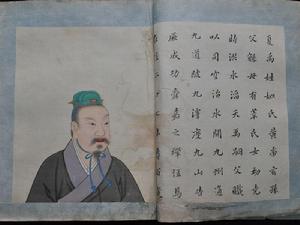 夏禹姓姒氏黃帝玄孫
父鯀母有莘氏女堯
時洪水滔天禹嗣父職
以司空治水開九州通
九道陂九澤度九山告
厥成功舜嘉之禪